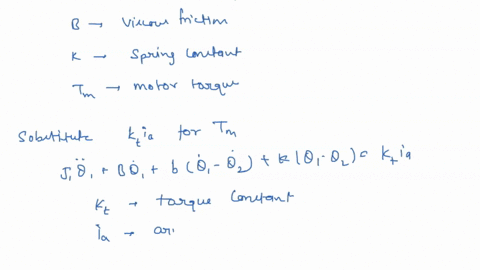 B → Viscous friction
K → Spring constant
Tm → motor torque
Sobstitute ktia for Tm
J1θ̈1 + Bθ̇1 + b(θ̇1 - θ̇2) + k(θ1 - θ2) = ktia
Kt → torque constant
ia → ar